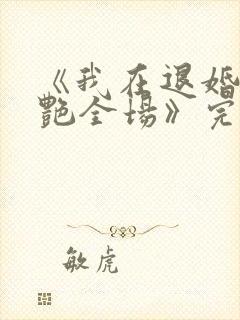 《我在退婚
艳全场》完
敏虎